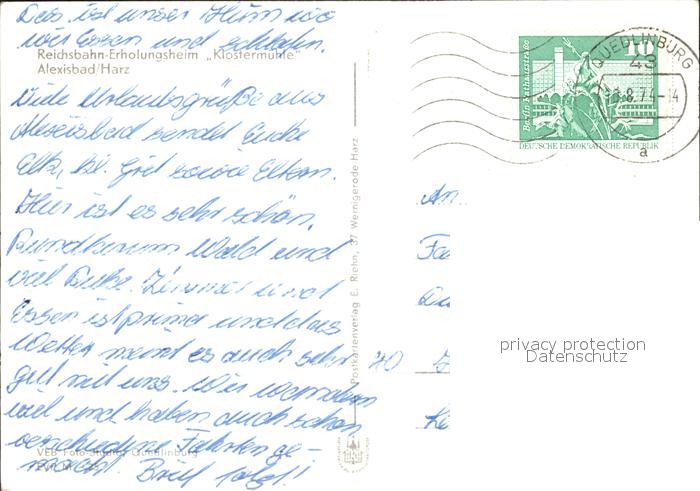 Das ist unser Heim wo
wir Essen und schlafen.
Reichsbahn-Erholungsheim „Klostermühle"
Alexisbad/Harz
Viele Urlaubsgrüße aus
Alexisbad sendet Euch
sowie Eltern.
Hier ist es sehr schön.
Rundherum Wald und
viel Ruhe. Zimmer und
Essen ist prima und das
Wetter meint es auch sehr
gut mit uns. Wir wandern
viel und haben auch schon
verschiedene Fahrten ge-
macht. Brief folgt!
VEB Foto-Studio Quedlinburg
Postkartenverlag E. Riehn, 37 Wernigerode Harz
QUEDLINBURG
43
8.74-14
a
10
Berlin · Rathausstraße
DEUTSCHE DEMOKRATISCHE REPUBLIK
An
Fa
40
privacy protection
Datenschutz